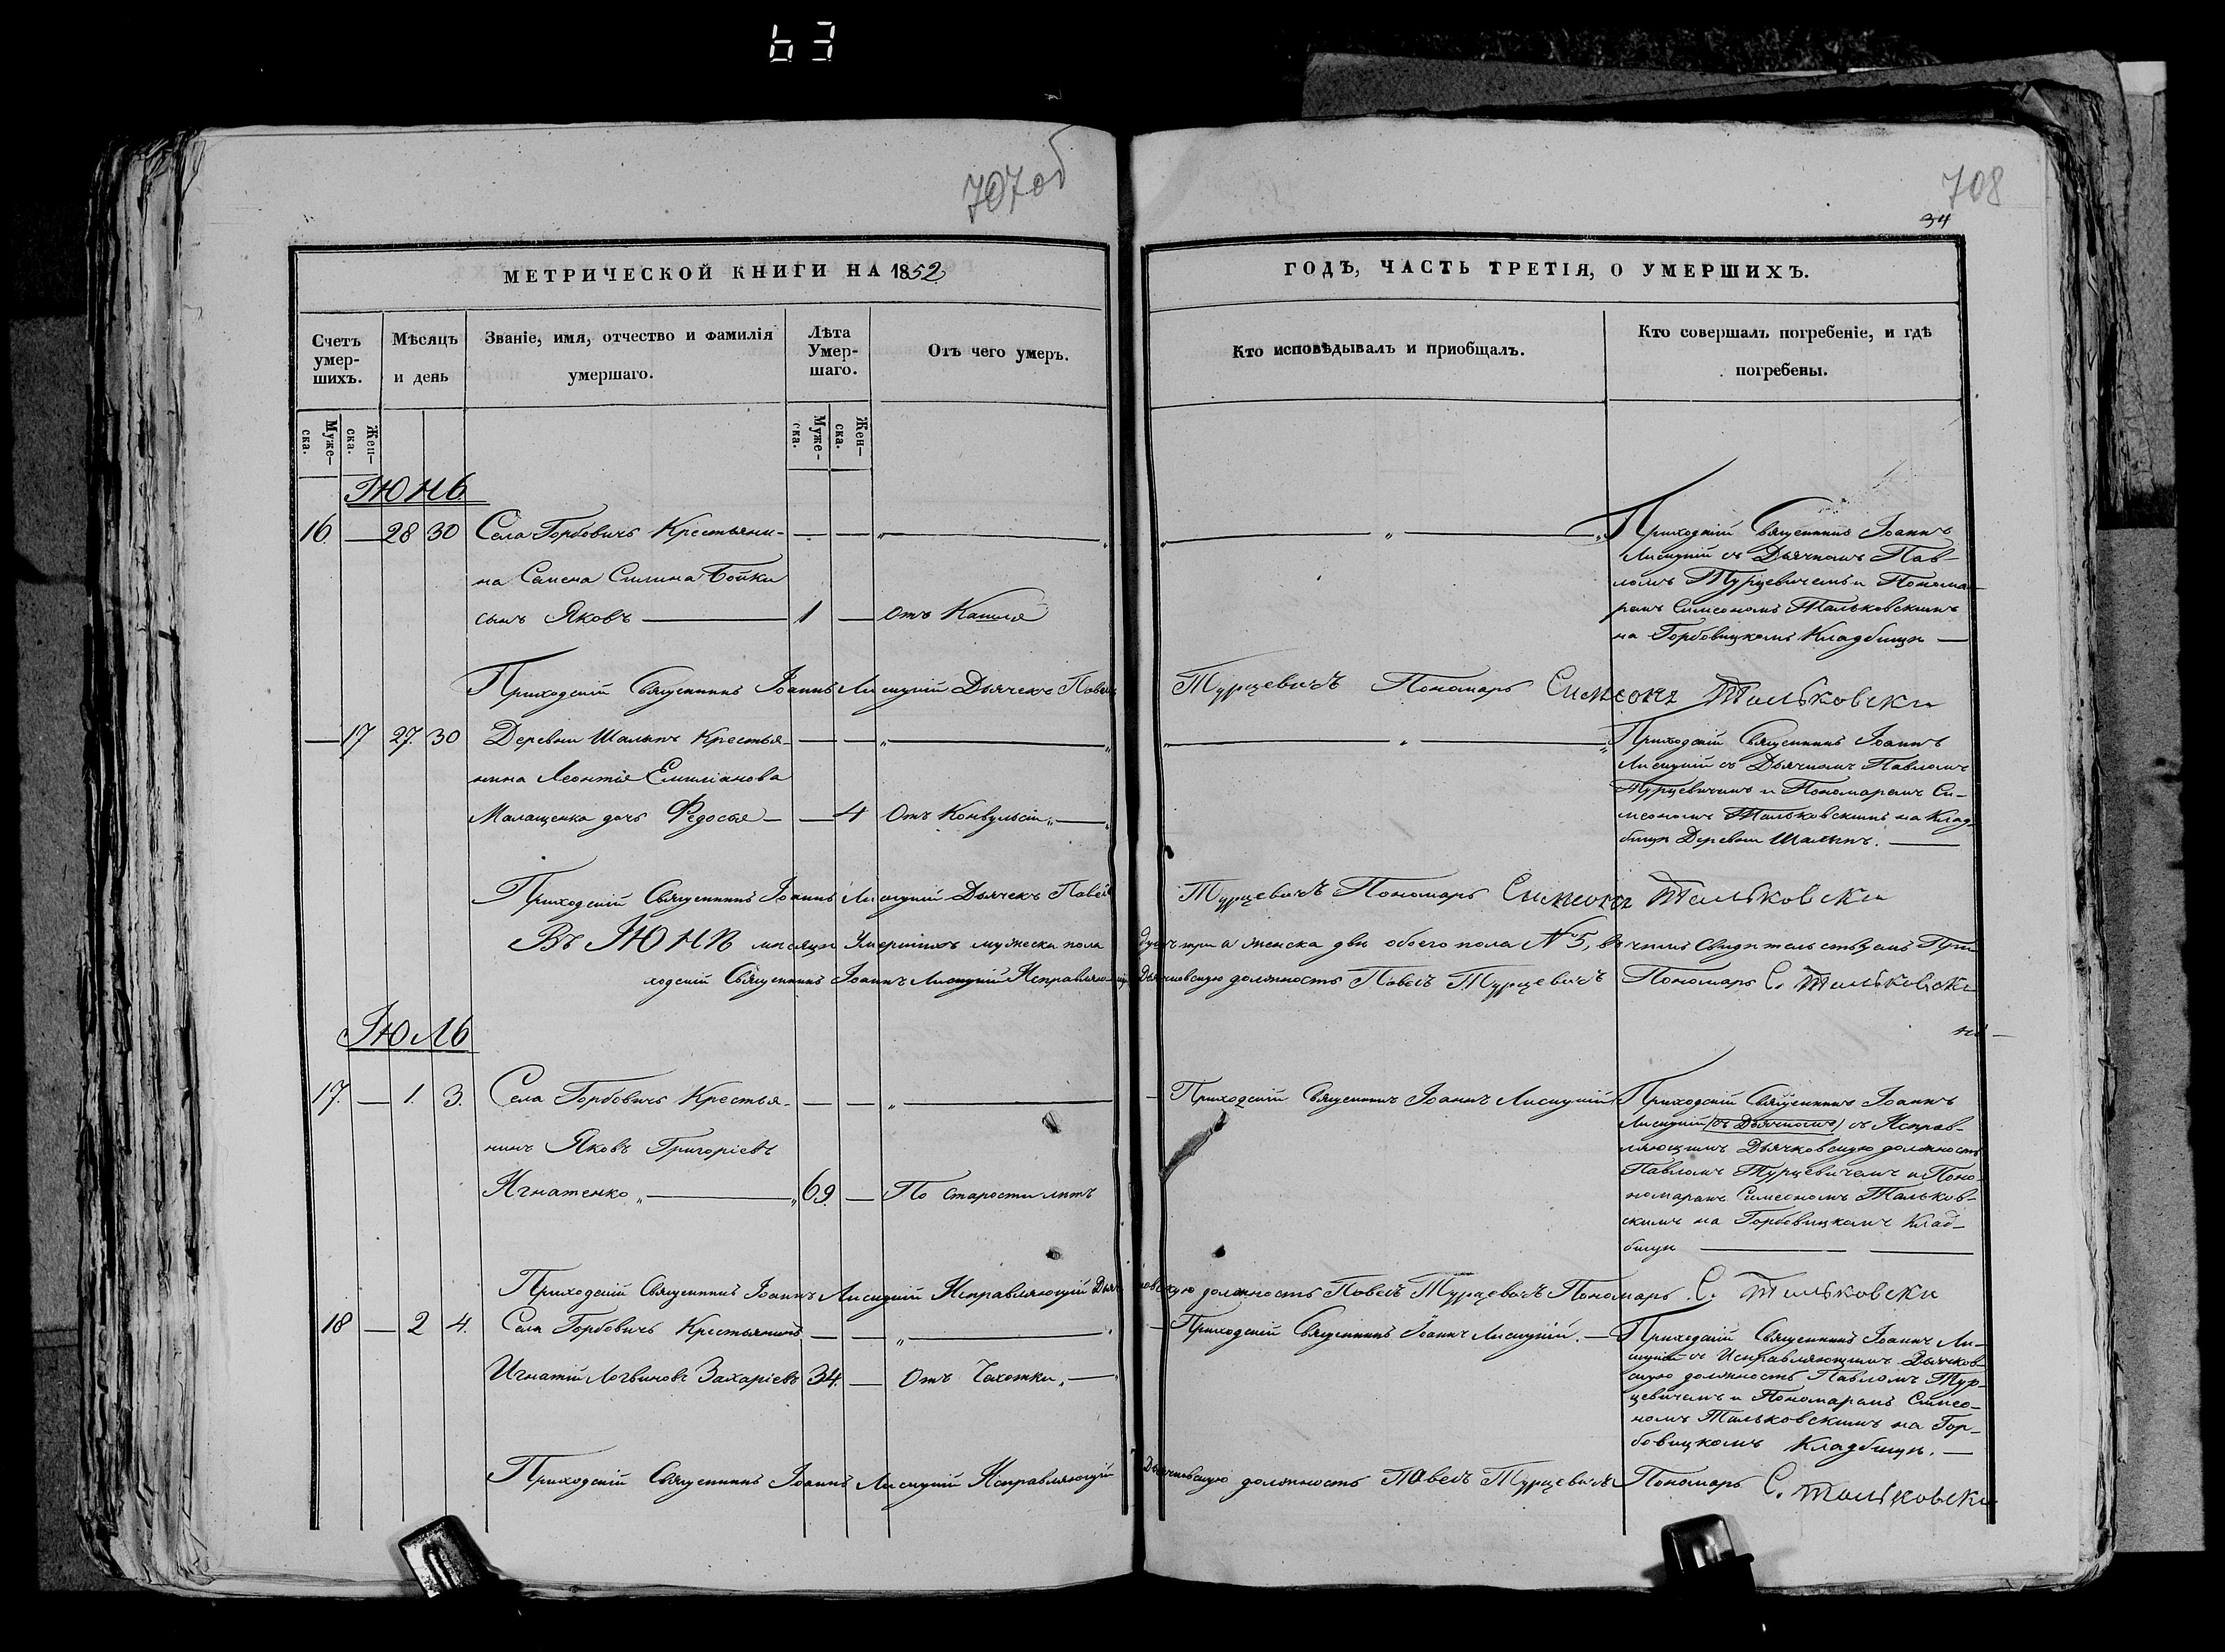 63
707об
708
34
МЕТРИЧЕСКОЙ КНИГИ НА 1852
ГОДЪ, ЧАСТЬ ТРЕТІЯ, О УМЕРШИХЪ.
Счетъ умер-шихъ.
Мѣсяцъ и день
Званіе, имя, отчество и фамилія умершаго.
Лѣта Умер-шаго.
Отъ чего умеръ.
Кто исповѣдывалъ и приобщалъ.
Кто совершалъ погребеніе, и гдѣ погребены.
Муже-ска.
Жен-ска.
Муже-ска.
Жен-ска.
ІЮНЬ
16 — 28 30 Села Горбовичъ Крестьяни-
на Семена Силина Бойки
сынъ Яковъ — 1 — отъ Кашля
Приходскій Священникъ Іоаннъ
Лисицкій съ Дьячкомъ Пав-
ломъ Турцевичемъ и Понома-
ремъ Симеономъ Тальковскимъ
на Горбовицкомъ Кладбищѣ —
Приходскій Священникъ Іоаннъ Лисицкій Дьячекъ Павелъ Турцевичъ Пономарь Симеонъ Тальковски
— 17 27. 30 Деревни Шалыпъ Крестья-
нина Леонтія Емиліанова
Малащенка дочь Федосья — — 4 Отъ Конвульсіи „ —
Приходскій Священникъ Іоаннъ
Лисицкій съ Дьячкомъ Павломъ
Турцевичемъ и Пономаремъ Си-
меономъ Тальковскимъ на Клад-
бищѣ Деревни Шалыпъ. —
Приходскій Священникъ Іоаннъ Лисицкій Дьячекъ Павелъ Турцевичъ Пономарь Симеонъ Тальковски
Въ ІЮНѢ мѣсяцѣ Умершихъ мужеска пола душъ три а женска двѣ обоего пола №5, въ чемъ свидѣтельствуемъ При
ходскій Священникъ Іоаннъ Лисицкій Исправляющій Дьячковскую должность Павелъ Турцевичъ Пономарь С. Тальковски
ІЮЛЬ
17. — 1. 3. Села Горбовичъ Крестья-
нинъ Яковъ Григоріевъ
Игнатенко „ — „ 69. — По старости лѣтъ
Приходскій Священникъ Іоаннъ Лисицкій
Приходскій Священникъ Іоаннъ
Лисицкій (съ Дьячкомъ) съ Исправ-
ляющимъ Дьячковскую должность
Павломъ Турцевичемъ и Поно-
номаремъ Симеономъ Тальков-
скимъ на Горбовицкомъ Клад-
бищѣ —
Приходскій Священникъ Іоаннъ Лисицкій Исправляющій Дьячковскую должность Павелъ Турцевичъ Пономарь С. Тальковски
18 — 2 4. Села Горбовичъ Крестьянинъ
Игнатій Логвиновъ Захаріевъ 34. — Отъ Чахотки „ —
Приходскій Священникъ Іоаннъ Лисицкій. —
Приходскій Священникъ Іоаннъ Ли-
сицкій съ Исправляющимъ Дьячков-
скую должность Павломъ Тур-
цевичемъ и Пономаремъ Симео-
номъ Тальковскимъ на Гор-
бовицкомъ Кладбищѣ. —
Приходскій Священникъ Іоаннъ Лисицкій Исправляющій Дьячковскую должность Павелъ Турцевичъ Пономарь С. Тальковски